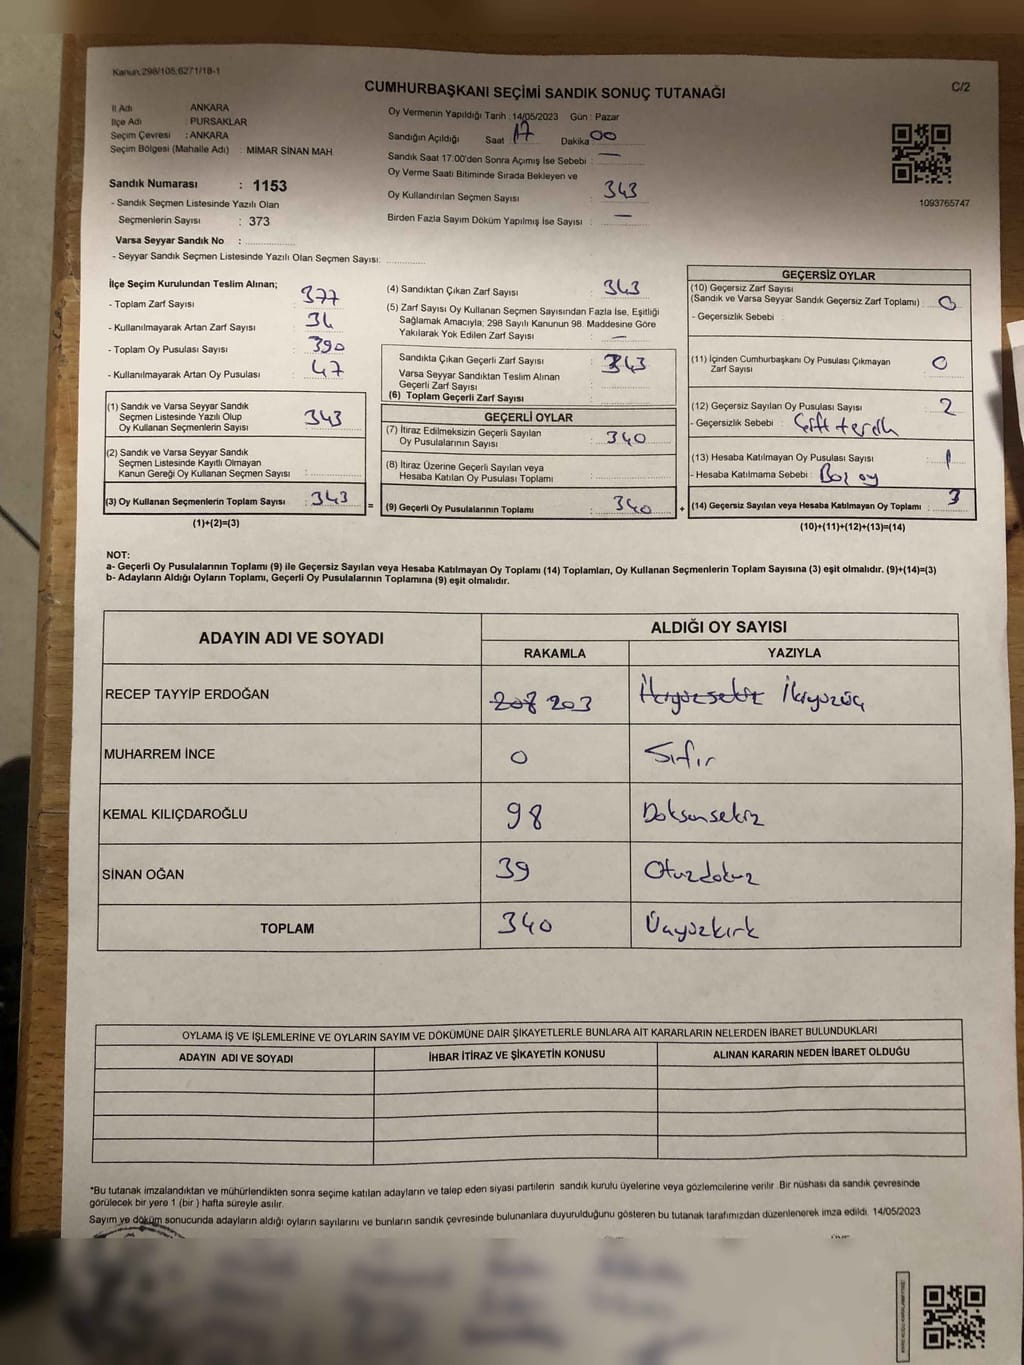 Kanun:298/105;6271/18-1
C/2
CUMHURBAŞKANI SEÇİMİ SANDIK SONUÇ TUTANAĞI
İl Adı ANKARA
İlçe Adı PURSAKLAR
Seçim Çevresi : ANKARA
Seçim Bölgesi (Mahalle Adı) : MİMAR SİNAN MAH.
Sandık Numarası : 1153
- Sandık Seçmen Listesinde Yazılı Olan
Seçmenlerin Sayısı : 373
Varsa Seyyar Sandık No :
- Seyyar Sandık Seçmen Listesinde Yazılı Olan Seçmen Sayısı:
Oy Vermenin Yapıldığı Tarih : 14/05/2023 Gün : Pazar
Sandığın Açıldığı Saat 17 Dakika 00
Sandık Saat 17:00'den Sonra Açımış İse Sebebi : —
Oy Verme Saati Bitiminde Sırada Bekleyen ve
Oy Kullandırılan Seçmen Sayısı : 343
Birden Fazla Sayım Döküm Yapılmış İse Sayısı : —
1093765747
İlçe Seçim Kurulundan Teslim Alınan;
- Toplam Zarf Sayısı : 377
- Kullanılmayarak Artan Zarf Sayısı : 34
- Toplam Oy Pusulası Sayısı : 390
- Kullanılmayarak Artan Oy Pusulası : 47
(1) Sandık ve Varsa Seyyar Sandık
Seçmen Listesinde Yazılı Olup
Oy Kullanan Seçmenlerin Sayısı : 343
(2) Sandık ve Varsa Seyyar Sandık
Seçmen Listesinde Kayıtlı Olmayan
Kanun Gereği Oy Kullanan Seçmen Sayısı :
(3) Oy Kullanan Seçmenlerin Toplam Sayısı : 343 =
(1)+(2)=(3)
(4) Sandıktan Çıkan Zarf Sayısı : 343
(5) Zarf Sayısı Oy Kullanan Seçmen Sayısından Fazla İse, Eşitliği
Sağlamak Amacıyla; 298 Sayılı Kanunun 98. Maddesine Göre
Yakılarak Yok Edilen Zarf Sayısı : —
Sandıkta Çıkan Geçerli Zarf Sayısı : 343
Varsa Seyyar Sandıktan Teslim Alınan
Geçerli Zarf Sayısı :
(6) Toplam Geçerli Zarf Sayısı :
GEÇERLİ OYLAR
(7) İtiraz Edilmeksizin Geçerli Sayılan
Oy Pusulalarının Sayısı : 340
(8) İtiraz Üzerine Geçerli Sayılan veya
Hesaba Katılan Oy Pusulası Toplamı :
(9) Geçerli Oy Pusulalarının Toplamı : 340 +
GEÇERSİZ OYLAR
(10) Geçersiz Zarf Sayısı
(Sandık ve Varsa Seyyar Sandık Geçersiz Zarf Toplamı) : 0
- Geçersizlik Sebebi :
(11) İçinden Cumhurbaşkanı Oy Pusulası Çıkmayan
Zarf Sayısı : 0
(12) Geçersiz Sayılan Oy Pusulası Sayısı : 2
- Geçersizlik Sebebi : Çift tercih
(13) Hesaba Katılmayan Oy Pusulası Sayısı : 1
- Hesaba Katılmama Sebebi : Boş oy
(14) Geçersiz Sayılan veya Hesaba Katılmayan Oy Toplamı : 3
(10)+(11)+(12)+(13)=(14)
NOT:
a- Geçerli Oy Pusulalarının Toplamı (9) ile Geçersiz Sayılan veya Hesaba Katılmayan Oy Toplamı (14) Toplamları, Oy Kullanan Seçmenlerin Toplam Sayısına (3) eşit olmalıdır. (9)+(14)=(3)
b- Adayların Aldığı Oyların Toplamı, Geçerli Oy Pusulalarının Toplamına (9) eşit olmalıdır.
ADAYIN ADI VE SOYADI ALDIĞI OY SAYISI
RAKAMLA YAZIYLA
RECEP TAYYİP ERDOĞAN 208 203 İkiyüzsekiz İkiyüzüç
MUHARREM İNCE 0 Sıfır
KEMAL KILIÇDAROĞLU 98 Doksansekiz
SİNAN OĞAN 39 Otuzdokuz
TOPLAM 340 Üçyüzkırk
OYLAMA İŞ VE İŞLEMLERİNE VE OYLARIN SAYIM VE DÖKÜMÜNE DAİR ŞİKAYETLERLE BUNLARA AİT KARARLARIN NELERDEN İBARET BULUNDUKLARI
ADAYIN ADI VE SOYADI İHBAR İTİRAZ VE ŞİKAYETİN KONUSU ALINAN KARARIN NEDEN İBARET OLDUĞU
*Bu tutanak imzalandıktan ve mühürlendikten sonra seçime katılan adayların ve talep eden siyasi partilerin sandık kurulu üyelerine veya gözlemcilerine verilir. Bir nüshası da sandık çevresinde
görülecek bir yere 1 (bir) hafta süreyle asılır.
Sayım ve döküm sonucunda adayların aldığı oyların sayılarını ve bunların sandık çevresinde bulunanlara duyurulduğunu gösteren bu tutanak tarafımızdan düzenlenerek imza edildi. 14/05/2023